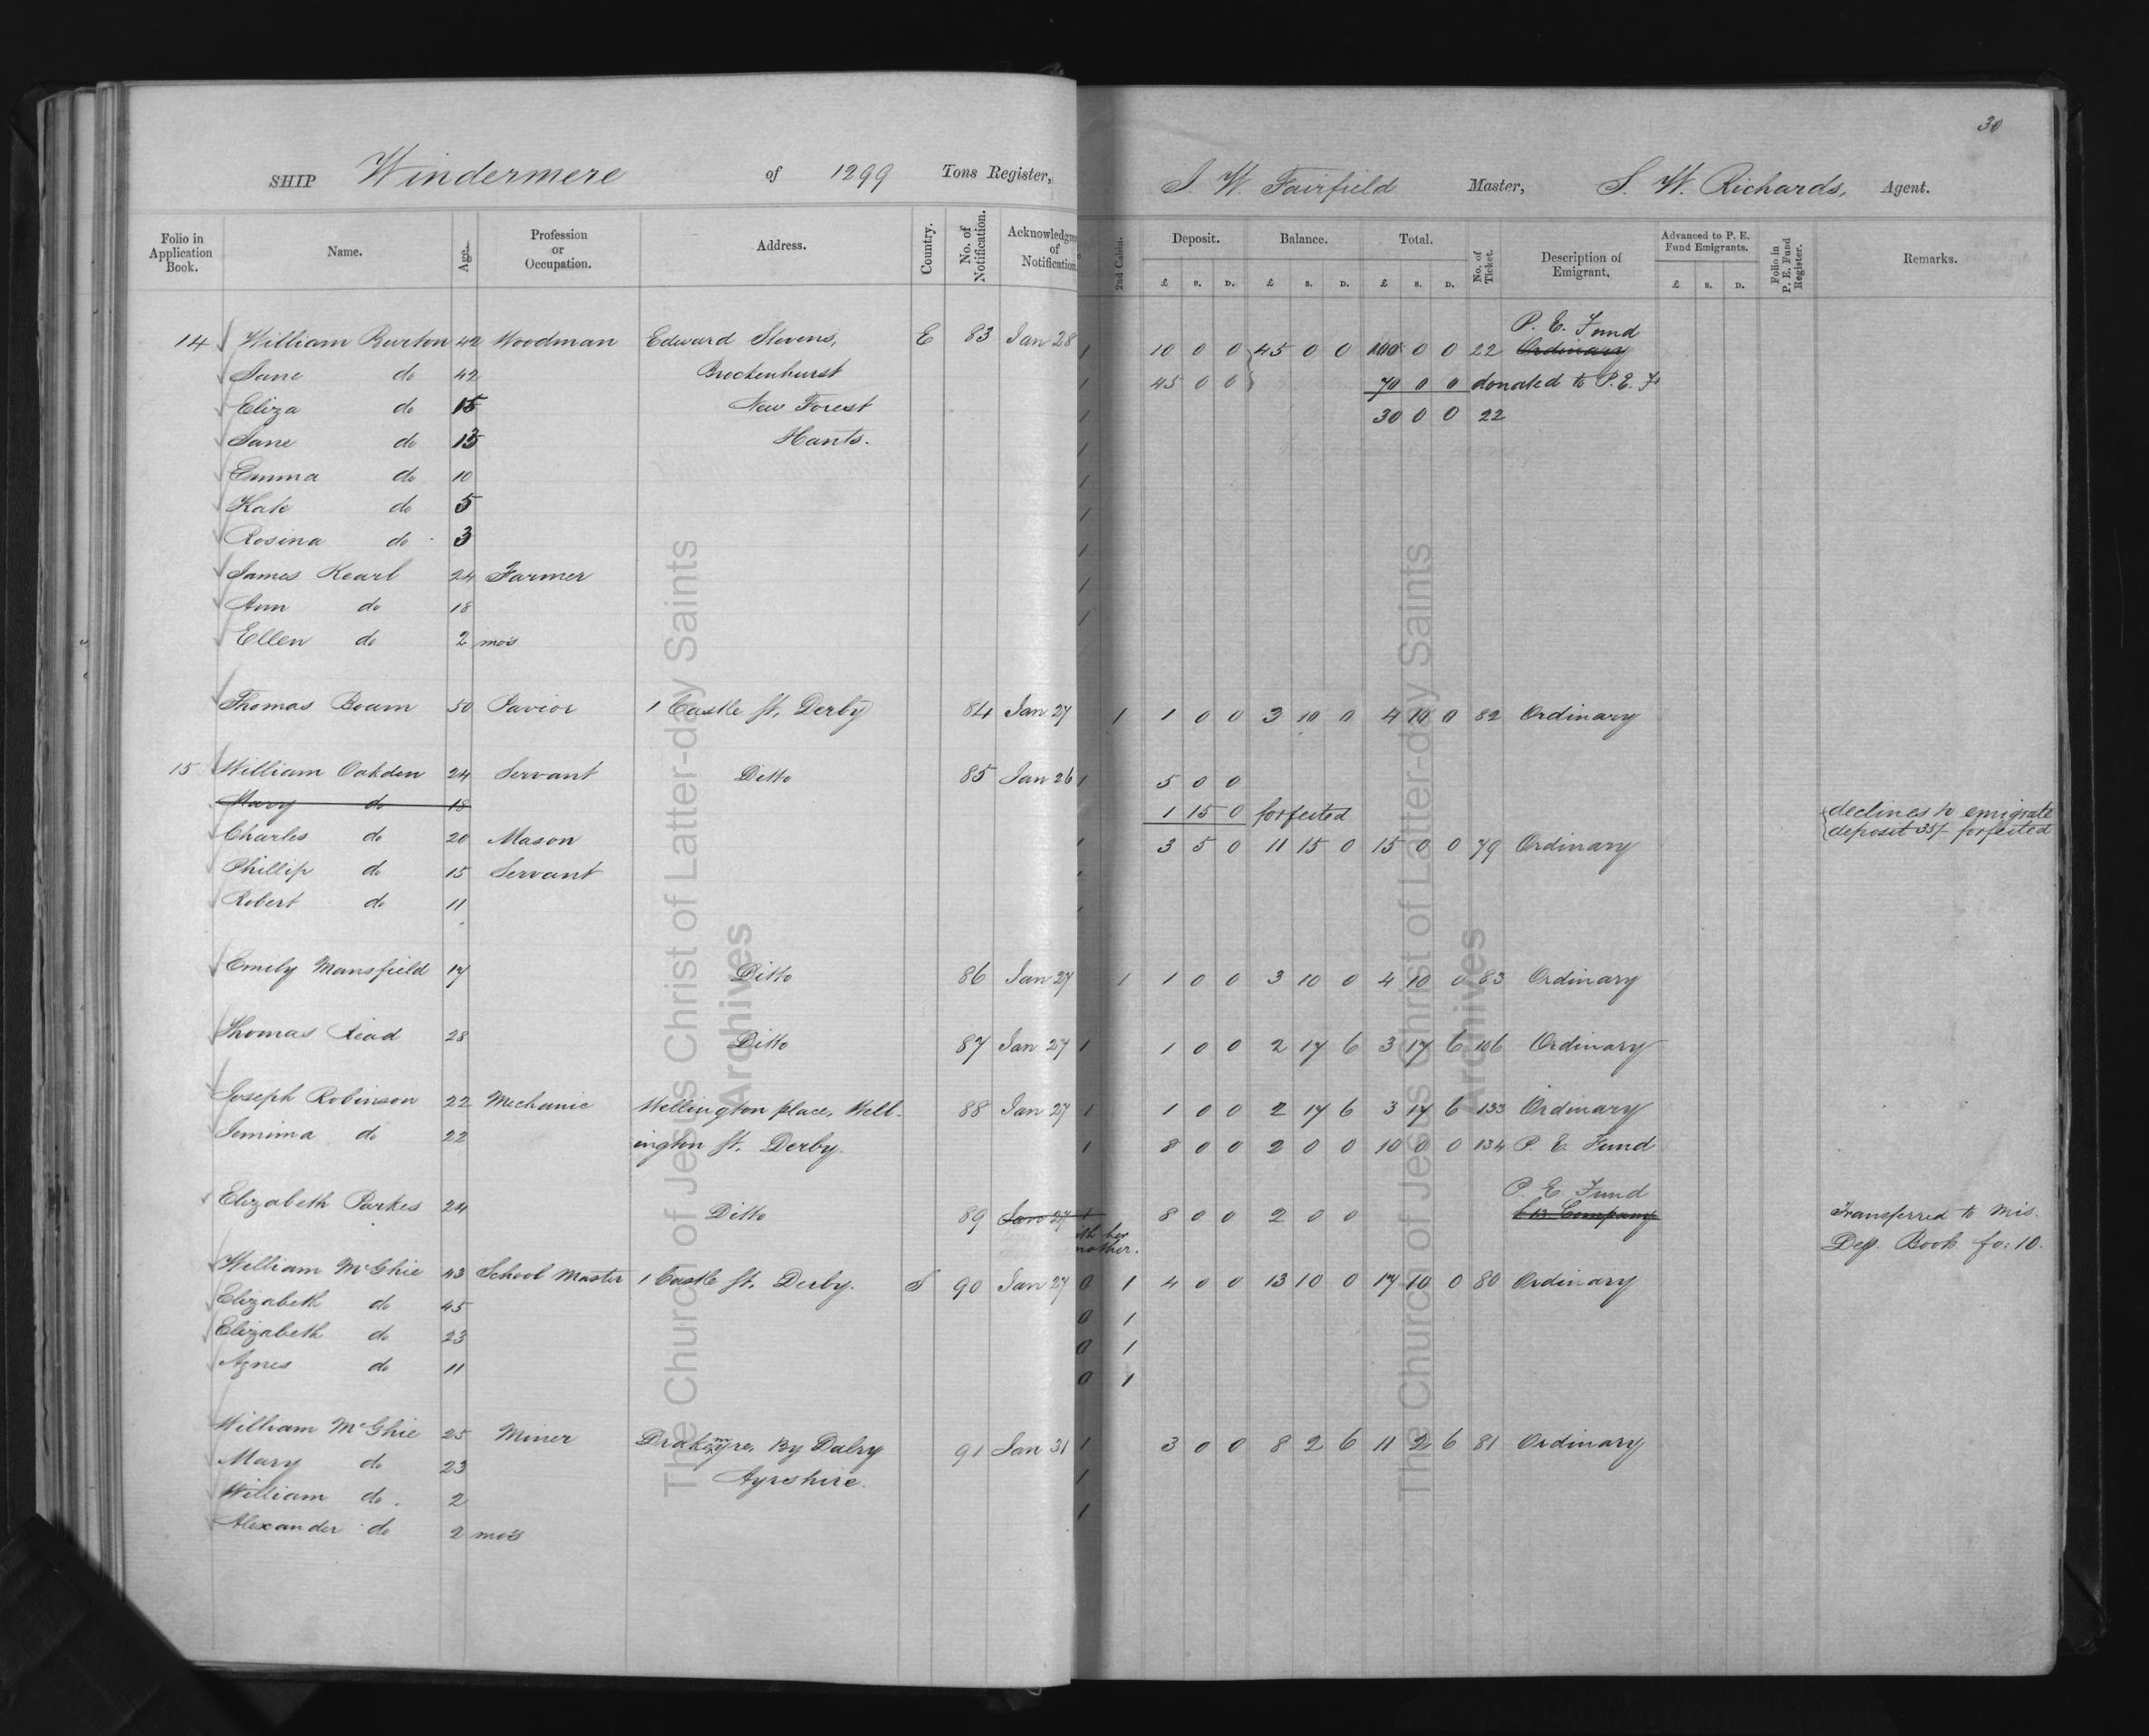 30
SHIP Windermere of 1299 Tons Register, J. W. Fairfield Master, S. W. Richards, Agent.
Folio in Application Book. Name. Age. Profession or Occupation. Address. Country. No. of Notification. Acknowledgm of Notification. 2nd Cabin. Deposit. Balance. Total. No. of Ticket. Description of Emigrant. Advanced to P. E. Fund Emigrants. Folio in P. E. Fund Register. Remarks.
£ s. D. £ s. D. £ s. D. £ s. D.
P. E. Fund
14 William Burton 42 Woodman Edward Stevens, E 83 Jan 28 1 10 0 0 45 0 0 100 0 0 22 Ordinary
Jane do 42 Brockenhurst 1 45 0 0 70 0 0 donated to P. E. F.
Eliza do 15 New Forest 1 30 0 0 22
Jane do 13 Hants. 1
Emma do 10 1
Kate do 5 1
Rosina do 3 1
James Kearl 24 Farmer 1
Ann do 18 1
Ellen do 2 mos
Thomas Boam 50 Pavior 1 Castle St, Derby 84 Jan 27 1 1 0 0 3 10 0 4 10 0 82 Ordinary
15 William Oakden 24 Servant Ditto 85 Jan 26 1 5 0 0
Mary do 18 1 15 0 forfeited declines to emigrate
Charles do 20 Mason 1 3 5 0 11 15 0 15 0 0 79 Ordinary deposit 35/ forfeited
Phillip do 15 Servant
Robert do 11
Emily Mansfield 17 Ditto 86 Jan 27 1 1 0 0 3 10 0 4 10 0 83 Ordinary
Thomas Read 28 Ditto 87 Jan 27 1 1 0 0 2 17 6 3 17 6 106 Ordinary
Joseph Robinson 22 Mechanic Wellington place, Well- 88 Jan 27 1 1 0 0 2 17 6 3 17 6 133 Ordinary
Jemima do 22 ington St. Derby. 1 8 0 0 2 0 0 10 0 0 134 P. E. Fund
P. E. Fund
Elizabeth Parkes 24 Ditto 89 Jan 27 1 8 0 0 2 0 0 £13 Company Transferred to Mis.
ith her mother. Dep. Book fo: 10.
William McGhie 43 School Master 1 Castle St, Derby. S 90 Jan 27 0 1 4 0 0 13 10 0 17 10 0 80 Ordinary
Elizabeth do 45 0 1
Elizabeth do 23 0 1
Agnes do 11 0 1
William McGhie 25 Miner Drakemyre, By Dalry 91 Jan 31 1 3 0 0 8 2 6 11 2 6 81 Ordinary
Mary do 23 Ayrshire. 1
William do. 2 1
Alexander do 2 mos
The Church of Jesus Christ of Latter-day Saints
Archives
The Church of Jesus Christ of Latter-day Saints
Archives